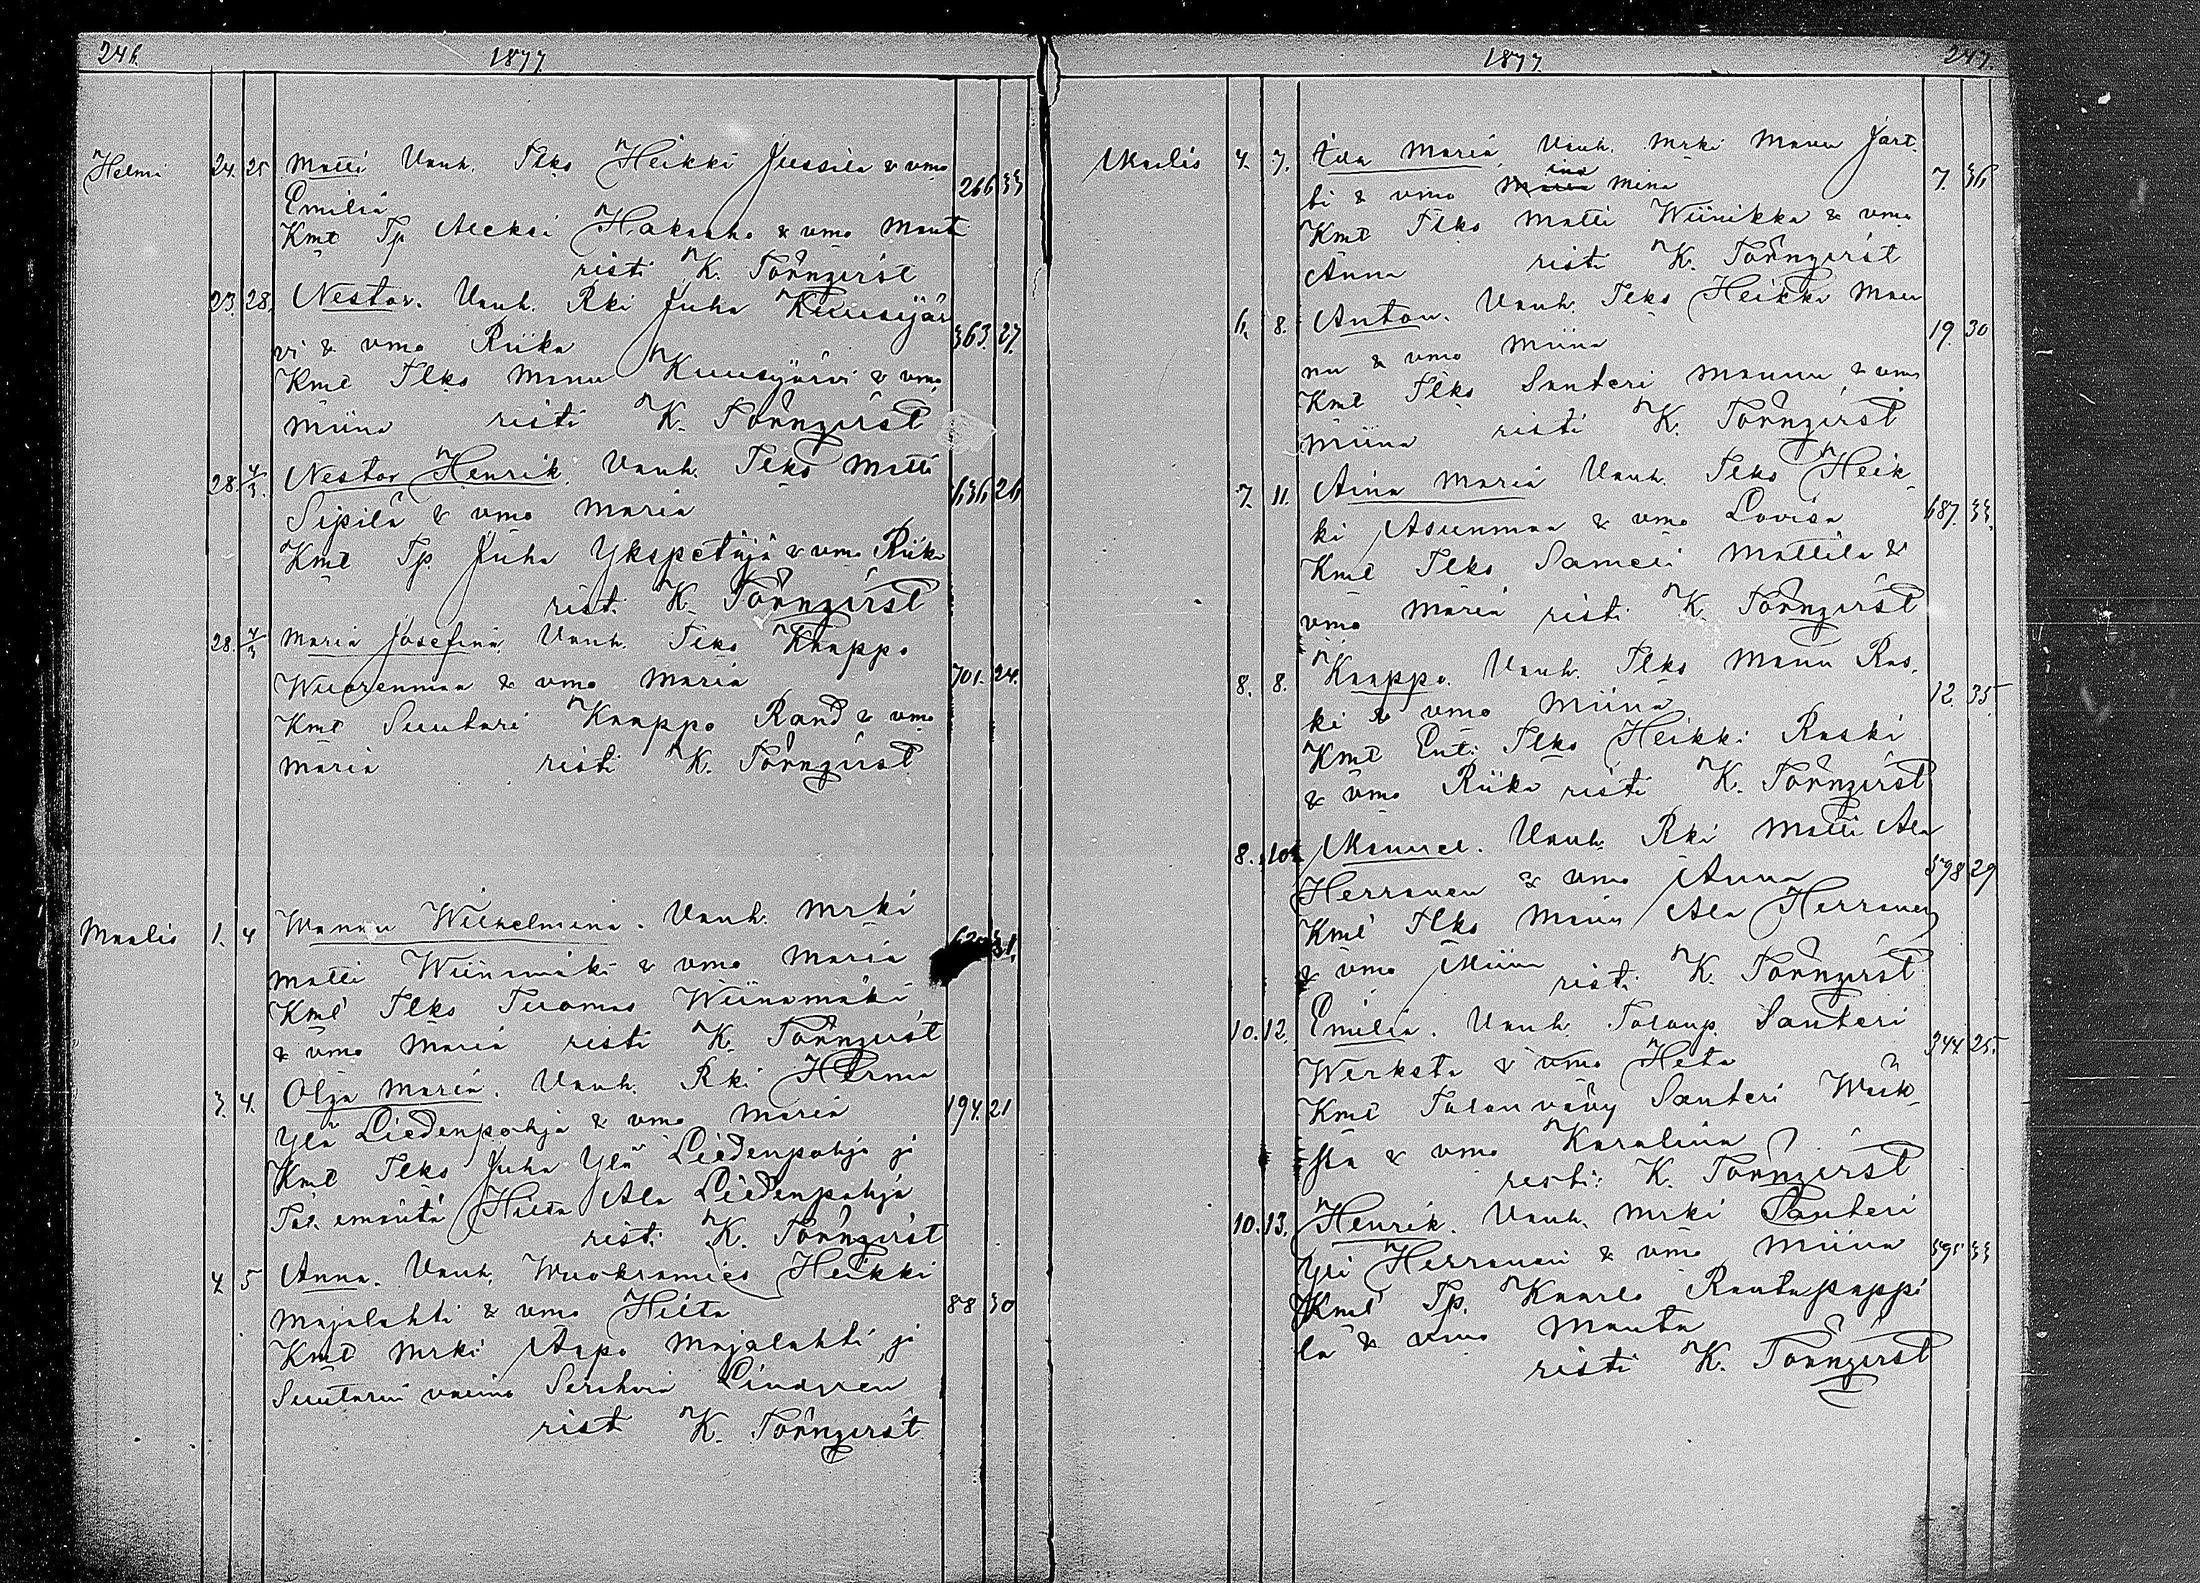 246.
1877.
Helmi 24. 25 Matti Vanh. Tlks Heikki Jussila & vmo
Emilia 266 33
Kmt Tp Aleksi Hakaaho & vmo Manta
risti K. Törnqvist
23. 28. Nestor. Vanh. Rki Juha Kuusijär
vi & vmo Riika 363. 27.
Kmt Tlks Manu Kuusijärvi & vmo
Miina risti K. Törnqvist
28. 4/3. Nestor Henrik. Vanh. Tlks Matti
Sipilä & vmo Maria 636 26
Kmt Tp. Juha Ykspetäjä & vmo Riika
risti K. Törnqvist
28. 4/3 Maria Josefina. Vanh. Tlks Kaappo
Wuorenmaa & vmo Maria 701. 24.
Kmt Suutari Kaappo Rand & vmo
Maria risti K. Törnqvist
Maalis 1. 4 Wilhelmina. Vanh. Mrki
Matti Wiinamäki & vmo Maria 31.
Kmt Tlks Tuomas Wiinamäki
& vmo Maria risti K. Törnqvist
3. 4. Olga Maria. Vanh. Rki Herma
Ylä Liedenpohja & vmo Maria 194. 21
Kmt Tlks Juha Ylä Liedenpohja ja
Tal. emäntä Hieta Ala Liedenpohja
risti K. Törnqvist
4 5 Anna. Vanh. Wuokramies Heikki
Majalahti & vmo Hieta 88 30
Kmt Mrki Aapo Majalahti ja
Suutarin vaimo Serahvia Lindgren
rist K. Törnqvist
1877.
247.
Maalis 4. 7. Ida Maria Vanh. Mrki Manu Järt.
bi & vmo Miina 7. 36
Kmt Tlks Matti Wiinikka & vmo
Anna risti K. Törnqvist
6. 8. Anton. Vanh. Tlks Heikki Mau
nu & vmo Miina 19. 30
Kmt Tlks Santeri Maunu & vmo
Miina risti K. Törnqvist
7. 11. Aina Maria Vanh. Tlks Heik-
ki Asunmaa & vmo Lovisa 687. 33.
Kmt Tlks Sameli Mattila &
vmo Maria risti K. Törnqvist
8. 8. Kaappo. Vanh. Tlks Manu Ras.
ki & vmo Miina 12. 35.
Kmt Ent. Tlks Heikki Raski
& vmo Riika risti K. Törnqvist
8. 10. Manuel. Vanh. Rki Matti Ala
Herranen & vmo Anna 598 29
Kmt Tlks Manu Ala Herranen
& vmo Miina risti. K. Törnqvist
10. 12. Emilia. Vanh Talonp. Santeri
Werksta & vmo Heta 344 25.
Kmt Talonvävy Santeri Werk-
sta & vmo Karalina
risti: K. Törnqvist
10. 13. Henrik. Vanh. Mrki Santeri
Yli Herranen & vmo Miina 595 33
Kmt Tp. Kaarlo Rantapappi
la & vmo Manta
risti K. Törnqvist